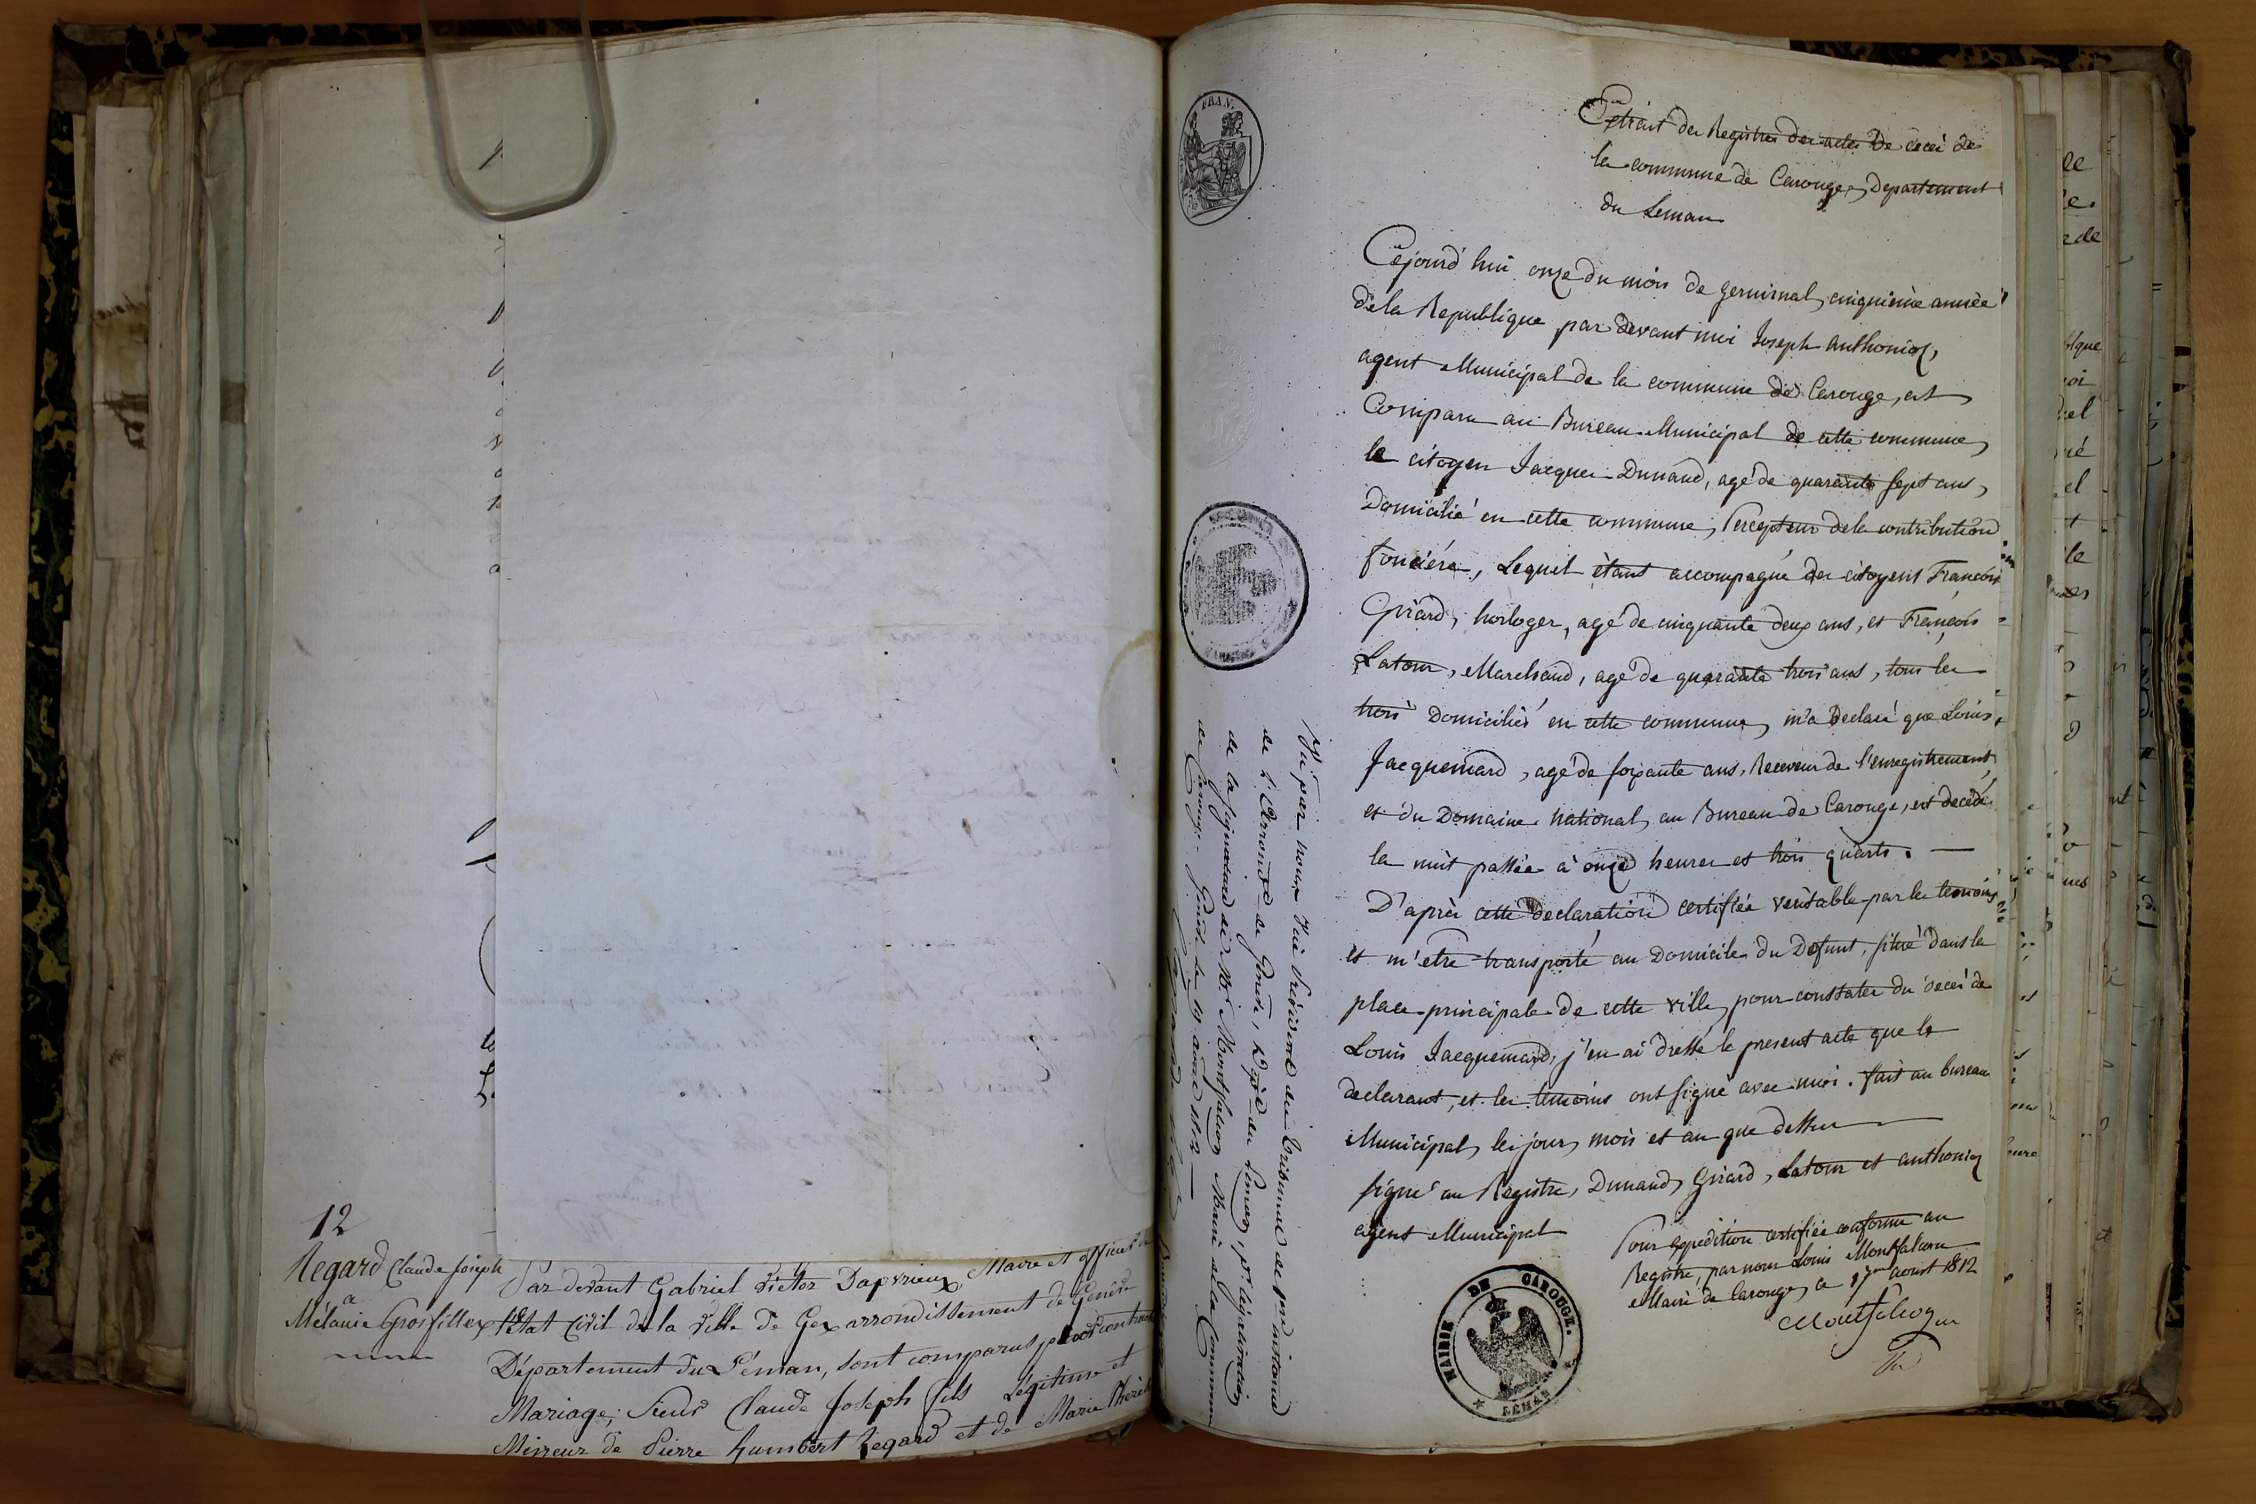 12
Regard Claude Joseph
a
Mélanie Grosfillex
Par devant Gabriel Victor Dapvrieux, Maire et officier de
l'état Civil de la ville de Gex arrondissement de Genève
Département du Léman, sont comparus pour contracter
Mariage; Sieur Claude Joseph fils Légitime et
Mineur de Pierre humbert Regard et de Marie Thérèse
FRAN.
Extrait des Registres des actes De décès de
la commune de Carouge, Departement
du Leman
Cejourd'hui onze du mois de germinal, cinquième année
de la Republique par devant moi Joseph Anthonioz,
agent Municipal de la commune de Carouge, est
Comparu au Bureau Municipal de cette commune,
le citoyen Jacques Dunand, agé de quarante sept ans,
Domicilié en cette commune, Percepteur de la contribution
foncière, Lequel étant accompagné des citoyens François
Girard, horloger, agé de cinquante deux ans, et François
Latour, Marchand, agé de quarante trois ans, tous les
trois Domiciliés en cette commune, m'a Declaré que Louis
Jacquemard, agé de soixante ans, Receveur de l'enregistrement,
et du Domaine national, au Bureau de Carouge, est decedé
la nuit passée à onze heures et trois quarts. —
D'après cette declaration certifiée veritable par les temoins
et m'etre transporté au Domicile du Defunt, situé dans la
place principale de cette ville, pour constater du décés de
Louis Jacquemard, j'en ai dressé le present acte que le
declarant, et les temoins ont signé avec moi. fait au bureau
Municipal, les jour, mois et an que dessus
signé au Registre, Dunand, Girard, Latour et anthonioz
agent Municipal
Pour expedition certifiée conforme au
Registre, par nous Louis Montfalcon
Maire de Carouge, ce 17me aoust 1812
Montfalcon
MAIRIE DE CAROUGE.
LEMAN
Vu par nous Vice Président du Tribunal de prre instance
de l'Arrondt de Genève, Dépt du Leman, pr. légalisation
de la signature de Mr. Montfalcon Maire de la Commune
de Carouge. Genève le 19 aout 1812 —